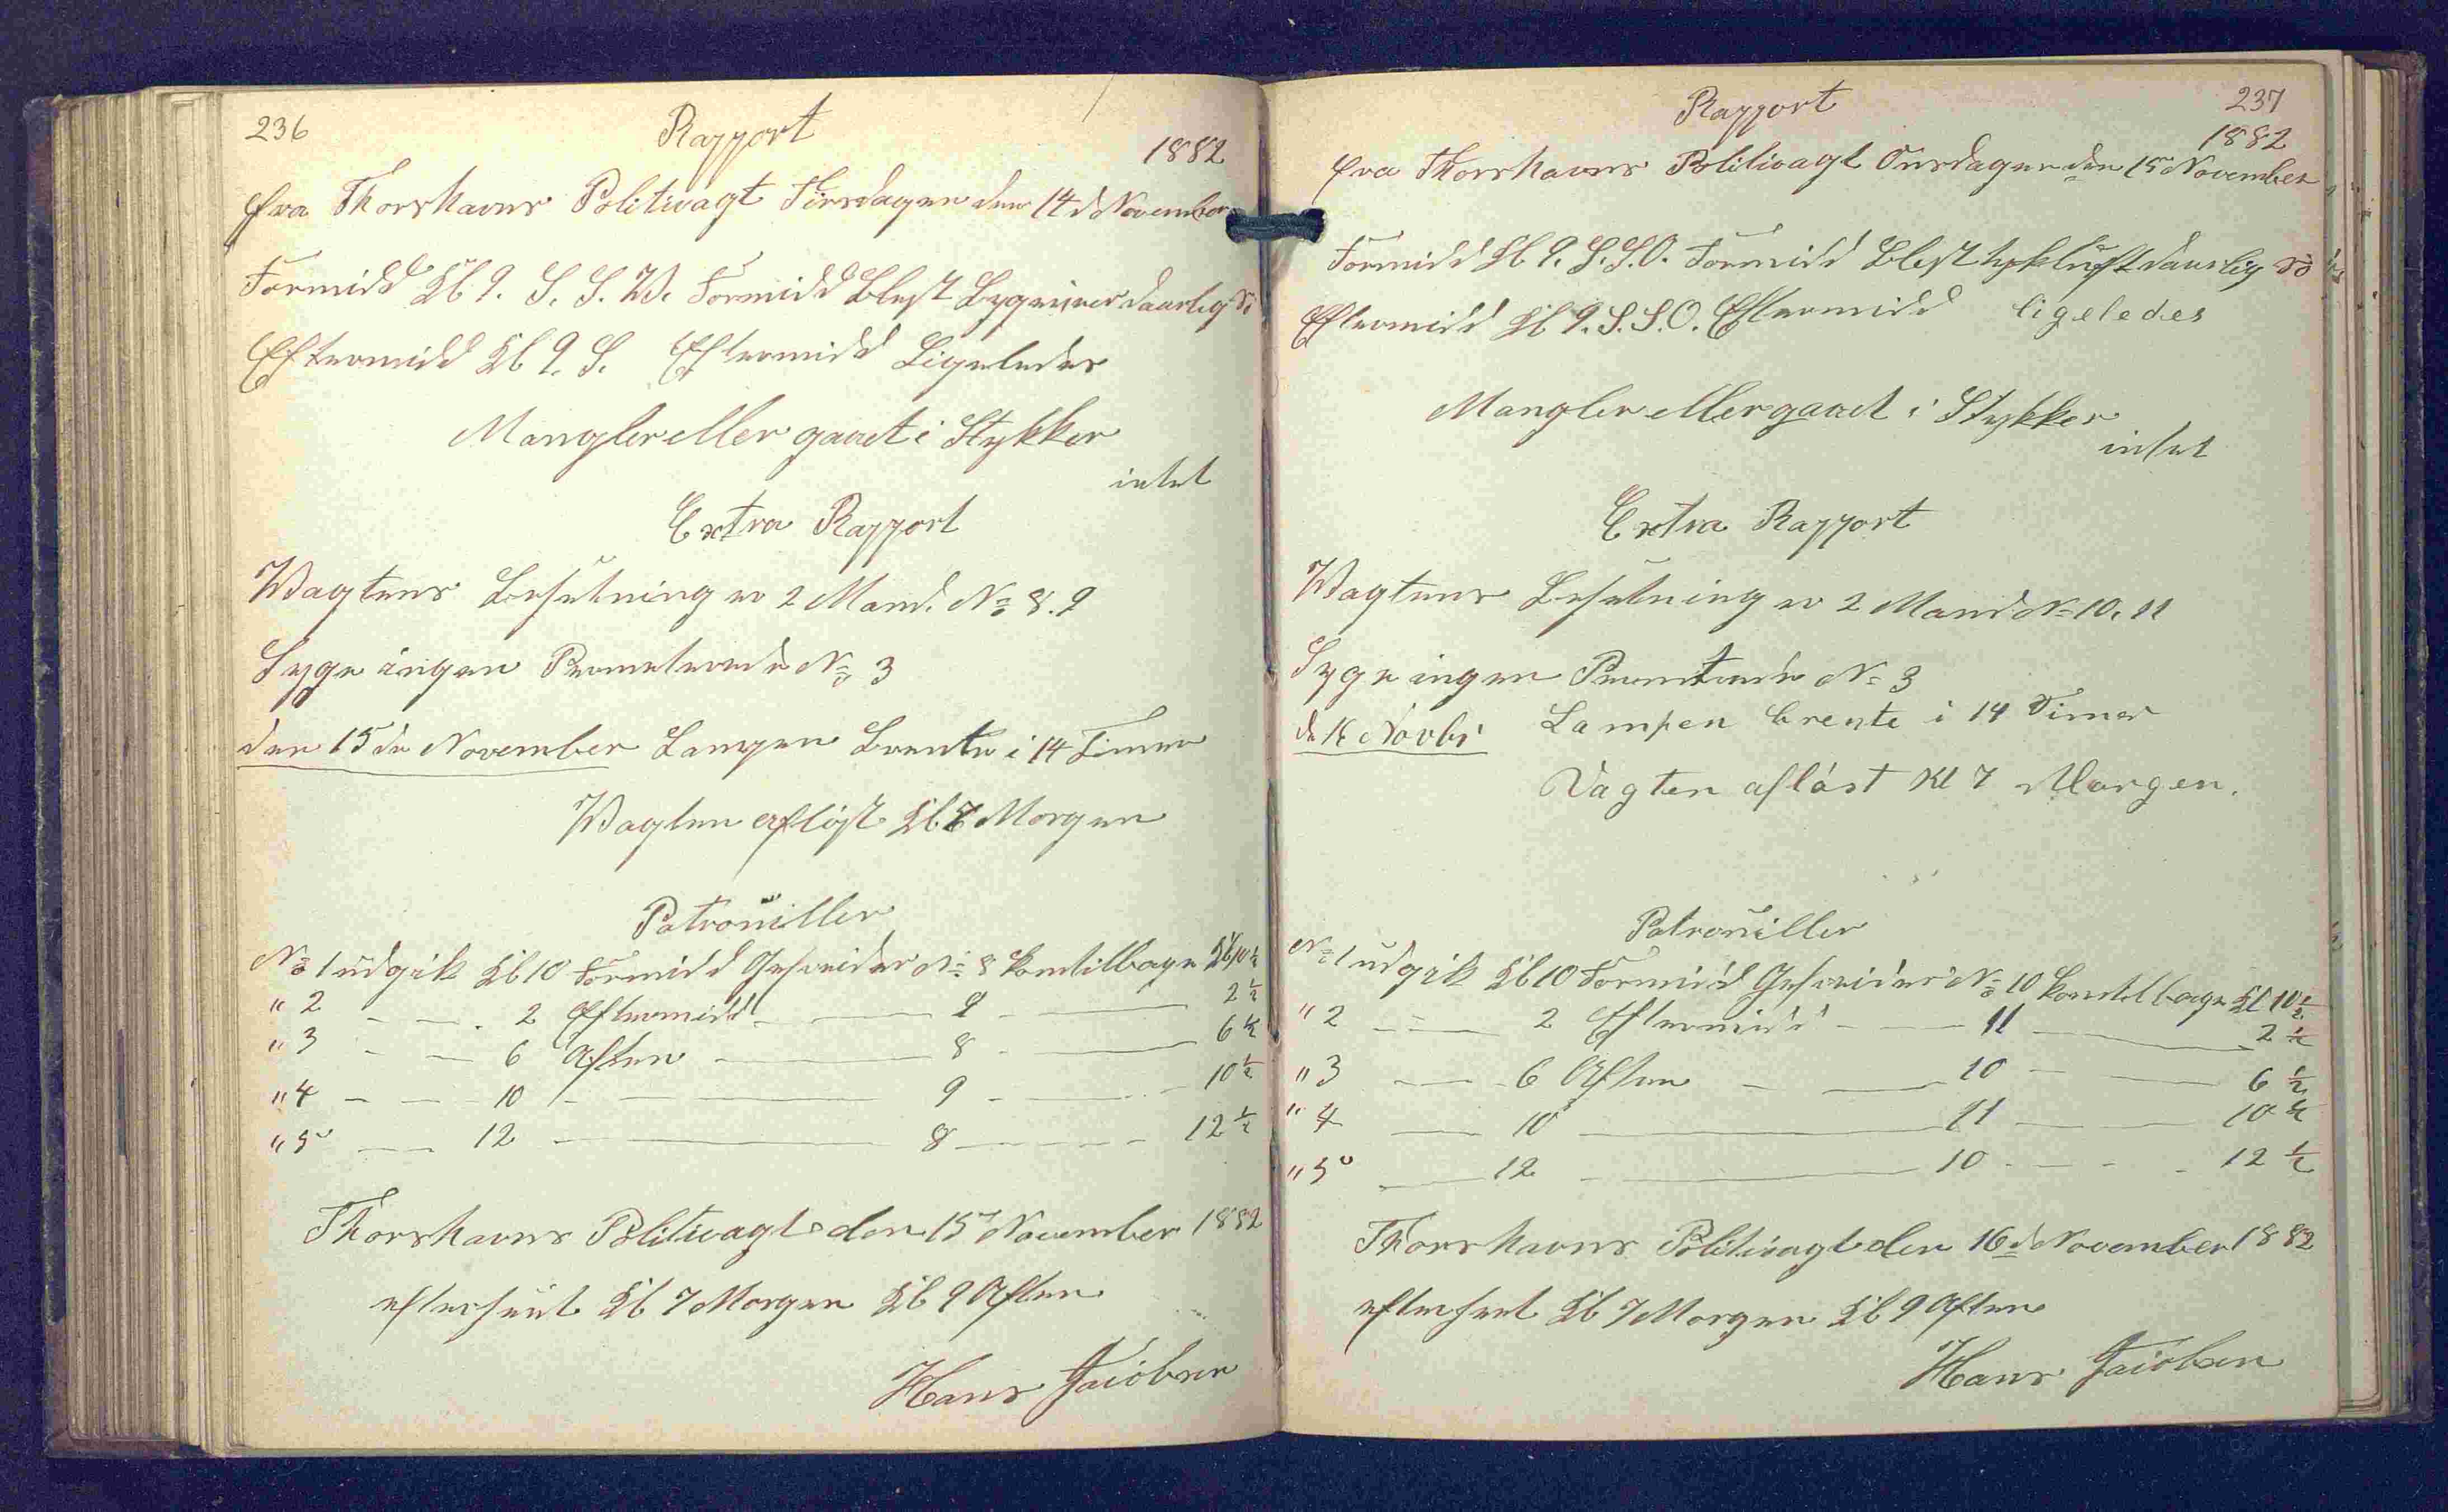 236
Rapport
1882
fra Thorshavns Politivagt Tirsdagen den 14d November
Formidd Kl 9. S. S. W. Formidd Blæst Bygeiver daarlig Sö
Eftermidd Kl 9. S. Eftermidd Ligeledes
Mangler eller gaaet i Stykker
intet
Extra Rapport
Wagtens Besetning er 2 Mand. No 8. 9
Syge ingen Permeterede No 3
den 15de November Lampen Brente i 14 Timer
Wagten aflöst Kl 7 Morgen
Patrouiller
No 1 udgik Kl 10 Formidd Gefreider No 8 kom tilbage Kl 10 ½
" 2 — — 2 Eftermidd — 9 — 2 ½
" 3 — — 6 Aften — 8 — 6 ½
" 4 — — 10 — — 9 — 10 ½
" 5 — — 12 — — 8 — 12 ½
Thorshavns Politivagt den 15 November 1882
efterseet Kl 7 Morgen Kl 9 Aften
Hans Jacobsen
237
Rapport
1882
fra Thorshavns Politivagt Onsdagen den 15 November
Formidd Kl 9. S.S.O. Formidd Blæst tykluft daarlig Sö
Eftermidd Kl 9. S.S.O. Eftermidd ligeledes
Mangler eller gaaet i Stykker
intet
Extra Rapport
Wagtens Besetning er 2 Mand No 10. 11
Syge ingen Permeterede No 3
d 16 Novbr Lampen brente i 14 Timer
Vagten aflöst Kl 7 Morgen.
Patrouiller
No 1 udgik Kl 10 Formidd Gefreider No 10 kom tilbage Kl 10 ½
" 2 — — 2 Eftermidd — 11 — 2 ½
" 3 — — 6 Aften — 10 — 6 ½
" 4 — — 10 — — 11 — 10 ½
" 5 — — 12 — — 10 — 12 ½
Thorshavns Politivagt den 16d November 1882
efterseet Kl 7 Morgen Kl 9 Aften
Hans Jacobsen